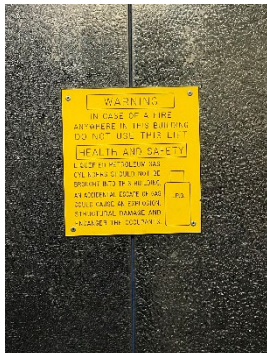 WARNING
IN CASE OF A FIRE
ANYWHERE IN THIS BUILDING
DO NOT USE THIS LIFT
HEALTH AND SAFETY
LIQUEFIED PETROLEUM GAS
CYLINDERS SHOULD NOT BE
BROUGHT INTO THIS BUILDING
AN ACCIDENTAL ESCAPE OF GAS
COULD CAUSE AN EXPLOSION,
STRUCTURAL DAMAGE AND
ENDANGER THE OCCUPANTS
LPG